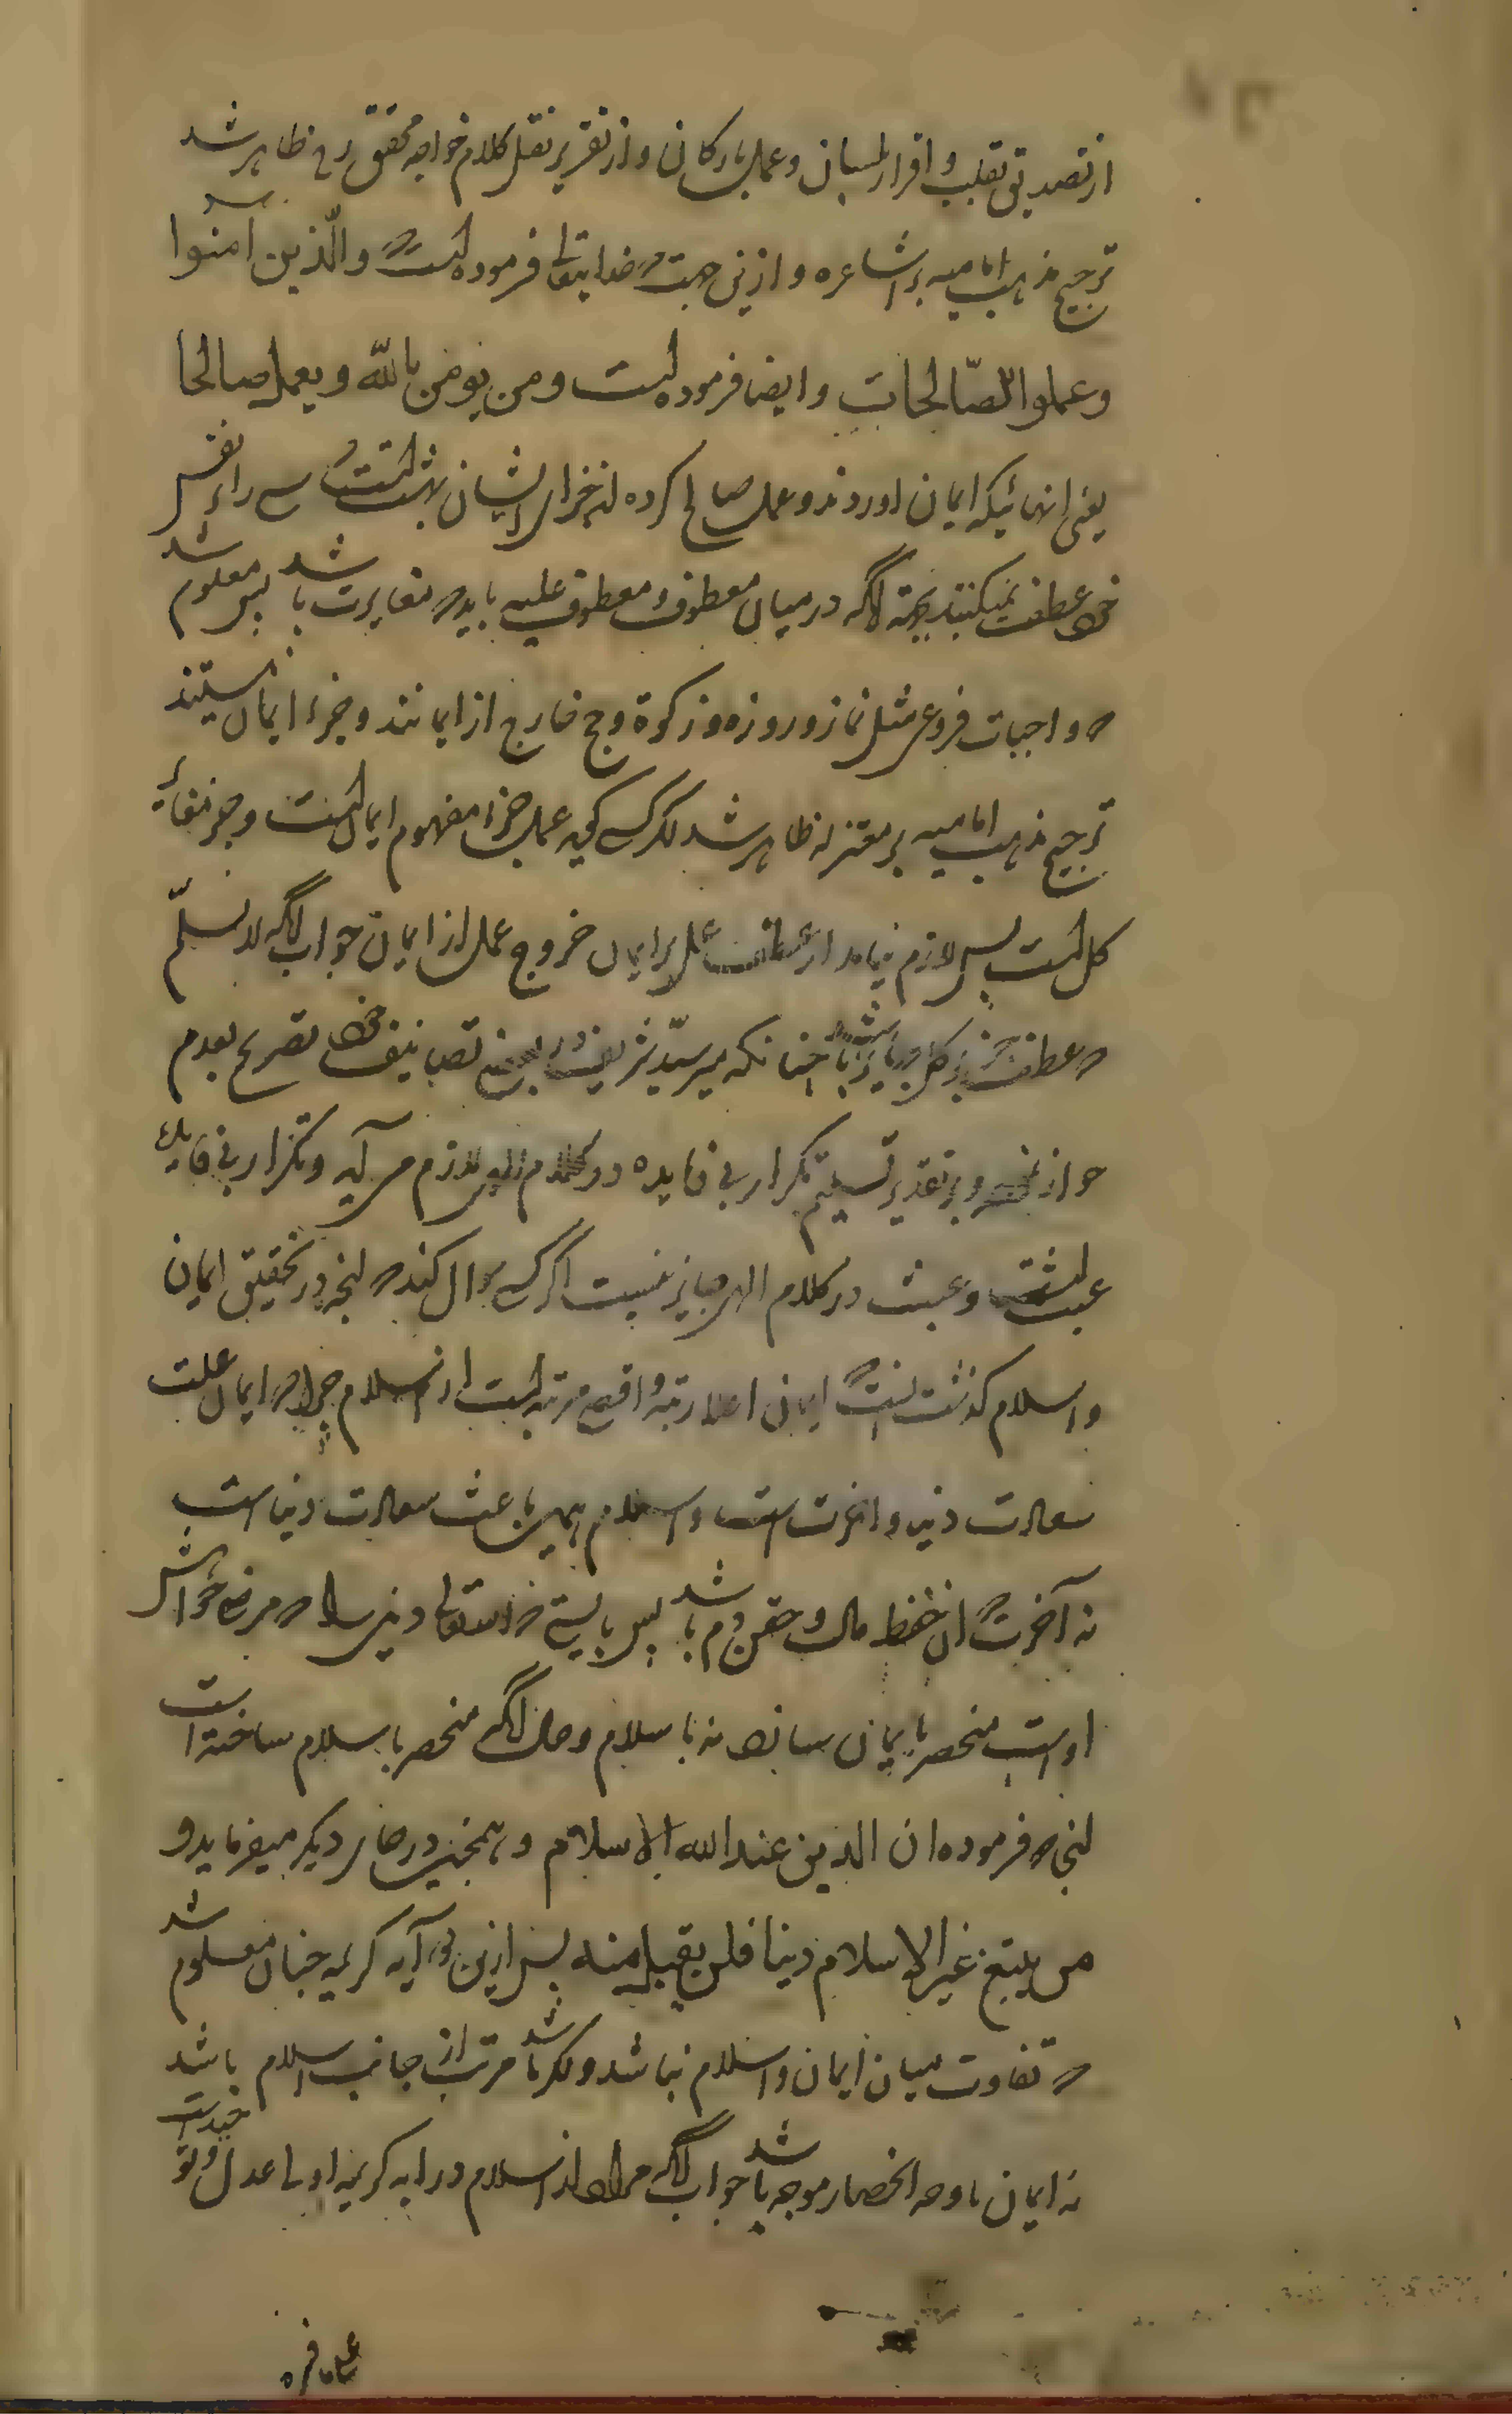 از تصدیق بقلب و اقرار بلسان و عمل بارکان و از تقریر نقل کلام خواجه محقق ره ظاهر شد
ترجیح مذهب امامیه بر اشاعره و ازینجهت که خدایتعالی فرموده است که والّذین آمنوا
وعملوا الصّالحات و ایضا فرموده است ومن یومن بالله ویعمل صالحا
یعنی انهائیکه ایمان اوردند و عمل صالح کرده اند جزای ایشان بهشت است و شے را بر نفس
خود عطف نمیکنند بجهة آنکه در میان معطوف و معطوف علیه باید که مغایرت باشد پس معلوم شد
که واجبات فروعی مثل نماز و روزه و زکوة و حج خارج از ایمانند و جزء ایمان نیستند
ترجیح مذهب امامیه بر معتزله ظاهر شد اگر کسی کوید عمل جزء مفهوم ایمان است و جزء مغایر
کل است پس لازم نیاید از عطف عمل بر ایمان خروج عمل از ایمان جواب آنکه لا نسلّم
که عطف جزء بر کل جایز باشد چنانکه میر سیّد شریف در بعضی تصانیف خود تصریح بعدم
جواز نموده و بر تقدیر تسلیم تکرار بی فایده در کلام الهی لازم می آید و تکرار بی فایده
عبث است و عبث در کلام الهی جایز نیست اگر کسے سوال کند که انچه در تحقیق ایمان
و اسلام کذشت انست که ایمان اعلا رتبه و اقصی مرتبه است از اسلام چرا که ایمان علت
سعادت دنیا و اخرت است و اسلام همین باعث سعادت دنیا است
نه آخرت که ان حفظ مال و حقن دم باشد پس بایستے که خدایتعالی دینی را که مرضی خواهش
اوست منحصر بایمان سازد نه باسلام و حال آنکه منحصر باسلام ساخته است
انجا که فرموده ان الدین عند الله الاسلام و همچنین در جای دیکر میفرماید و
من یبتغ غیر الاسلام دینا فلن یقبل منه پس ازین دو آیه کریمه چنان معلوم شد
که تفاوت میان ایمان و اسلام نباشد و اکر باشد مرتبه از جانب اسلام باشد
نه ایمان تا وجه انحصار موجه باشد جواب آنکه مراد از اسلام در ایه کریمه اولی عدل و توحید است